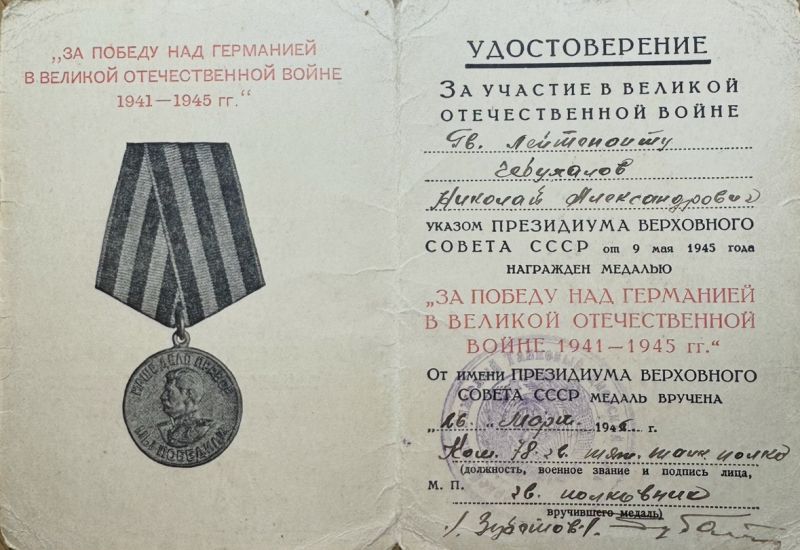 „ЗА ПОБЕДУ НАД ГЕРМАНИЕЙ
В ВЕЛИКОЙ ОТЕЧЕСТВЕННОЙ ВОЙНЕ
1941—1945 гг.“
НАШЕ ДЕЛО ПРАВОЕ
МЫ ПОБЕДИЛИ
УДОСТОВЕРЕНИЕ
ЗА УЧАСТИЕ В ВЕЛИКОЙ
ОТЕЧЕСТВЕННОЙ ВОЙНЕ
Гв. Лейтенанту
Николай Александрович
УКАЗОМ ПРЕЗИДИУМА ВЕРХОВНОГО
СОВЕТА СССР от 9 мая 1945 года
НАГРАЖДЕН МЕДАЛЬЮ
„ЗА ПОБЕДУ НАД ГЕРМАНИЕЙ
В ВЕЛИКОЙ ОТЕЧЕСТВЕННОЙ
ВОЙНЕ 1941—1945 гг.“
ОТ ИМЕНИ ПРЕЗИДИУМА ВЕРХОВНОГО
СОВЕТА СССР МЕДАЛЬ ВРУЧЕНА
„26 “ Март 194 г.
Ком. 78 гв. тяж. танк полка
(должность, военное звание и подпись лица,
М. П. гв. полковник
вручившего медаль)